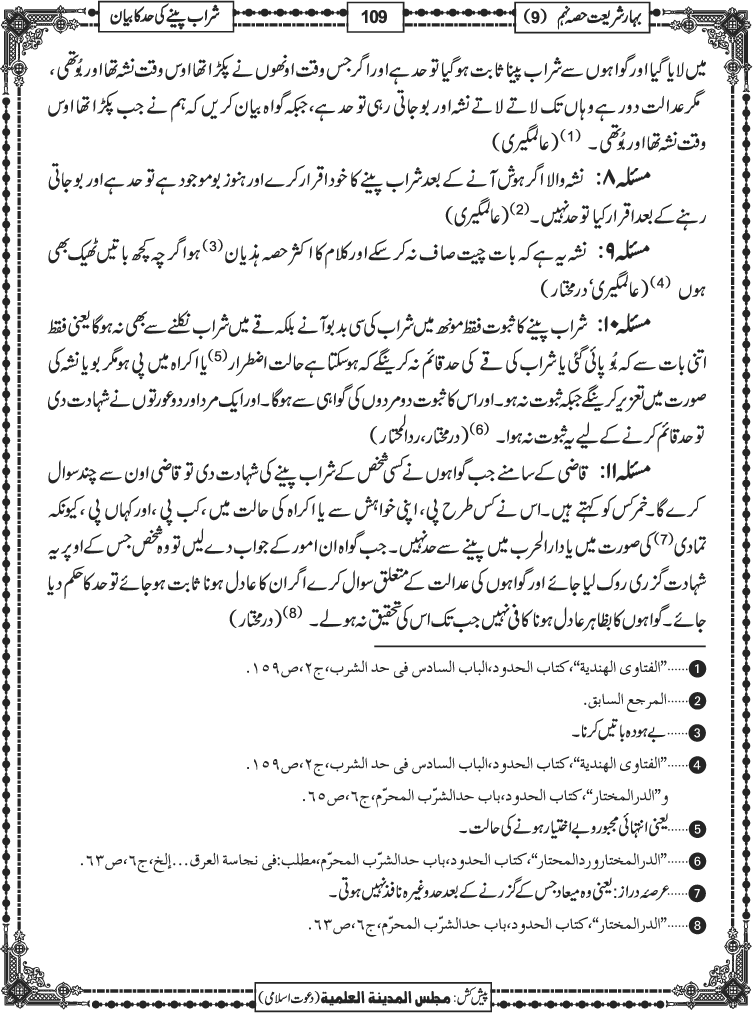 بہار شریعت حصہ نہم (9)
109
شراب پینے کی حد کا بیان
میں لایا گیا اور گواہوں سے شراب پینا ثابت ہو گیا تو حد ہے اور اگر جس وقت اونھوں نے پکڑا تھا اوس وقت نشہ تھا اور بُو تھی،
مگر عدالت دور ہے وہاں تک لاتے لاتے نشہ اور بو جاتی رہی تو حد ہے، جبکہ گواہ بیان کریں کہ ہم نے جب پکڑا تھا اوس
وقت نشہ تھا اور بُو تھی۔ (1) (عالمگیری)
مسئلہ ۸: نشہ والا اگر ہوش آنے کے بعد شراب پینے کا خود اقرار کرے اور ہنوز بو موجود ہے تو حد ہے اور بو جاتی
رہنے کے بعد اقرار کیا تو حد نہیں۔(2) (عالمگیری)
مسئلہ ۹: نشہ یہ ہے کہ بات چیت صاف نہ کر سکے اور کلام کا اکثر حصہ ہذیان(3) ہو اگر چہ کچھ باتیں ٹھیک بھی
ہوں (4) (عالمگیری، درمختار)
مسئلہ ۱۰: شراب پینے کا ثبوت فقط مونھ میں شراب کی سی بدبو آنے بلکہ قے میں شراب نکلنے سے بھی نہ ہو گا یعنی فقط
اتنی بات سے کہ بُو پائی گئی یا شراب کی قے کی حد قائم نہ کرینگے کہ ہو سکتا ہے حالت اضطرار(5) یا اکراہ میں پی ہو مگر بو یا نشہ کی
صورت میں تعزیر کرینگے جبکہ ثبوت نہ ہو۔ اور اس کا ثبوت دو مردوں کی گواہی سے ہو گا۔ اور ایک مرد اور دو عورتوں نے شہادت دی
تو حد قائم کرنے کے لیے یہ ثبوت نہ ہوا۔ (6) (درمختار، ردالمحتار)
مسئلہ ۱۱: قاضی کے سامنے جب گواہوں نے کسی شخص کے شراب پینے کی شہادت دی تو قاضی اون سے چند سوال
کرے گا۔ خمر کس کو کہتے ہیں۔ اس نے کس طرح پی، اپنی خواہش سے یا اکراہ کی حالت میں، کب پی، اور کہاں پی، کیونکہ
تمادی(7) کی صورت میں یا دارالحرب میں پینے سے حد نہیں۔ جب گواہ ان امور کے جواب دے لیں تو وہ شخص جس کے اوپر یہ
شہادت گزری روک لیا جائے اور گواہوں کی عدالت کے متعلق سوال کرے اگر ان کا عادل ہونا ثابت ہو جائے تو حد کا حکم دیا
جائے۔ گواہوں کا بظاہر عادل ہونا کافی نہیں جب تک اس کی تحقیق نہ ہولے۔ (8) (درمختار)
1......"الفتاوی الهندیة"،کتاب الحدود،الباب السادس فی حد الشرب،ج۲،ص۱۵۹.
2......المرجع السابق.
3......بے ہودہ باتیں کرنا۔
4......"الفتاوی الهندیة"،کتاب الحدود،الباب السادس فی حد الشرب،ج۲،ص۱۵۹.
و"الدرالمختار"،کتاب الحدود،باب حدالشرّب المحرّم،ج٦،ص٦٥.
5......یعنی انتہائی مجبور و بے اختیار ہونے کی حالت۔
6......"الدرالمختاروردالمحتار"،کتاب الحدود،باب حدالشرّب المحرّم،مطلب:فی نجاسة العرق...إلخ،ج٦،ص٦٣.
7......عرصۂ دراز: یعنی وہ میعاد جس کے گزرنے کے بعد حد وغیرہ نافذ نہیں ہوتی۔
8......"الدرالمختار"،کتاب الحدود،باب حدالشرّب المحرّم،ج٦،ص٦٣.
پیش کش: مجلس المدینة العلمیة (دعوت اسلامی)